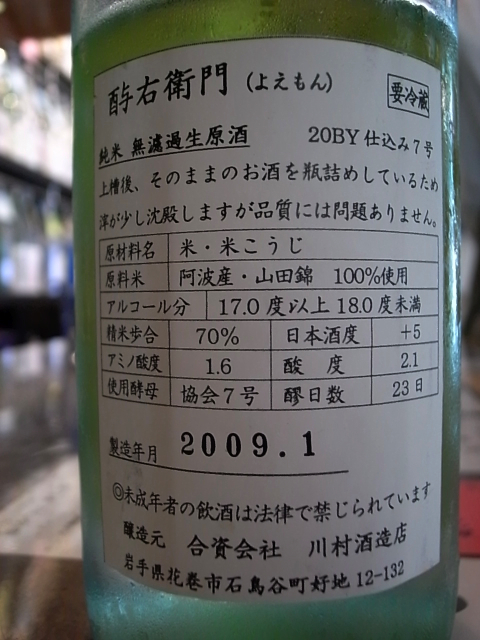 酉与右衛門 (よえもん) 要冷蔵
純米 無濾過生原酒 20BY仕込み7号
上槽後、そのままのお酒を瓶詰めしているため
滓が少し沈殿しますが品質には問題ありません。
原材料名 米・米こうじ
原料米 阿波産・山田錦 100%使用
アルコール分 17.0度以上18.0度未満
精米歩合 70% 日本酒度 +5
アミノ酸度 1.6 酸 度 2.1
使用酵母 協会7号 醪日数 23日
製造年月 2009.1
◎未成年者の飲酒は法律で禁じられています
醸造元 合資会社 川村酒造店
岩手県花巻市石鳥谷町好地12-132